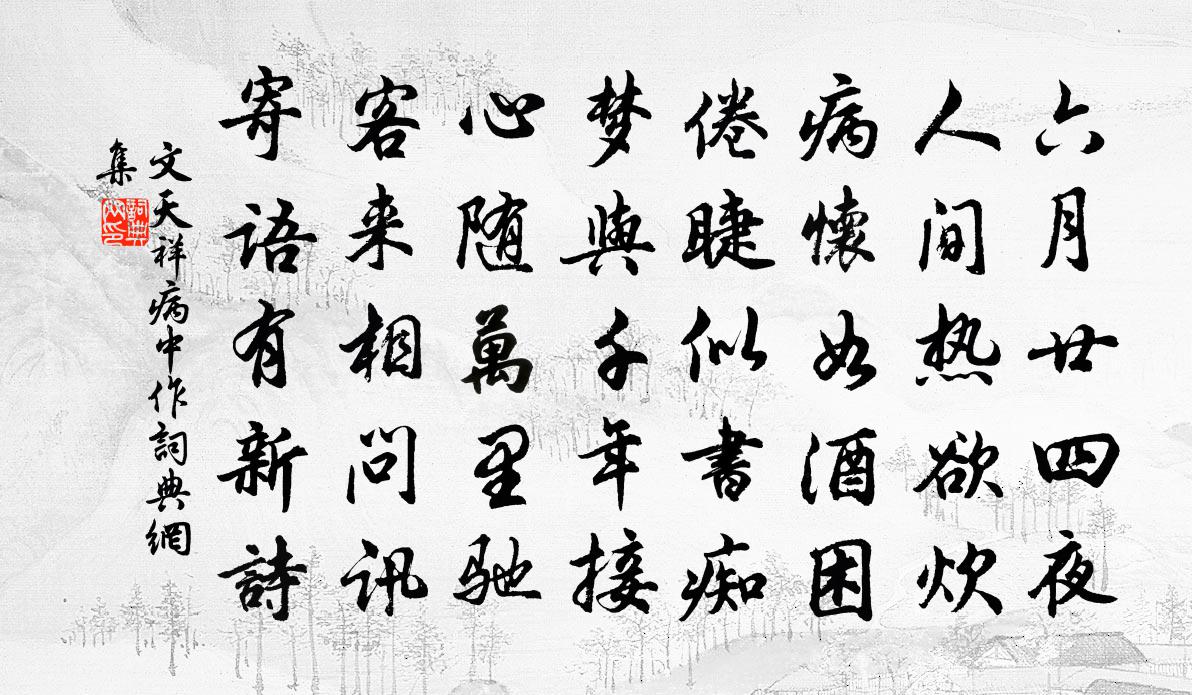 六月廿四夜
人间热欲炊
病懷如酒困
倦睫似書痴
梦與千年接
心随萬里驰
客来相问讯
寄语有新詩
文天祥病中作詞典網
集
詞典網印